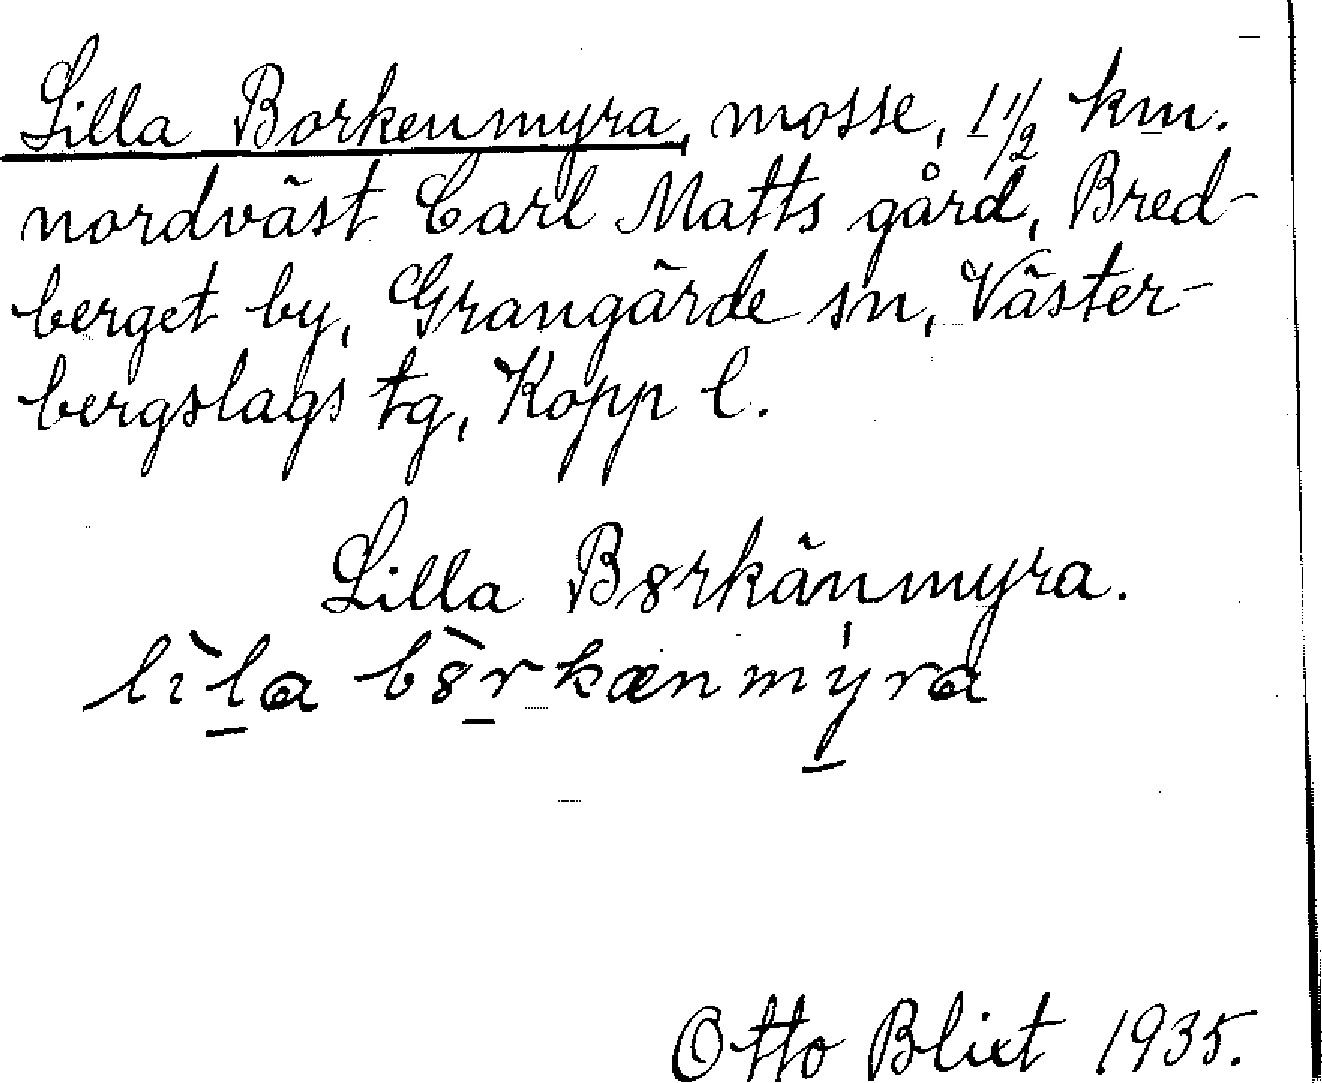 Lilla Borkenmyra, mosse, 1 1/2 km.
nordväst Carl Matts gård, Bred-
berget by, Grangärde sn, Väster-
bergslags tg, Kopp l.
Lilla B8rkänmyra.
lìla b8̀rkænmýra
Otto Blixt 1935.